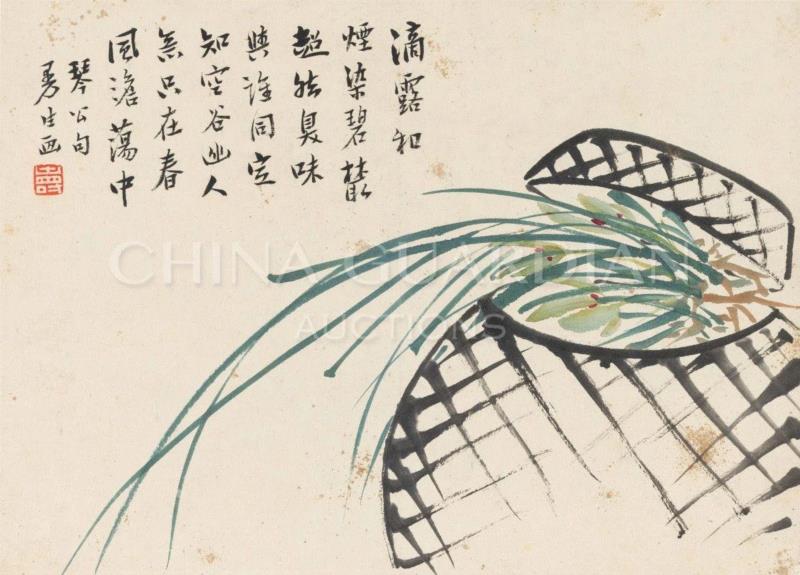 滴露和
煙染碧叢
超然臭味
與誰同定
知空谷幽人
意只在春
風澹蕩中
琴公句
曼生画
壽
CHINA GUARDIAN
AUCTIONS